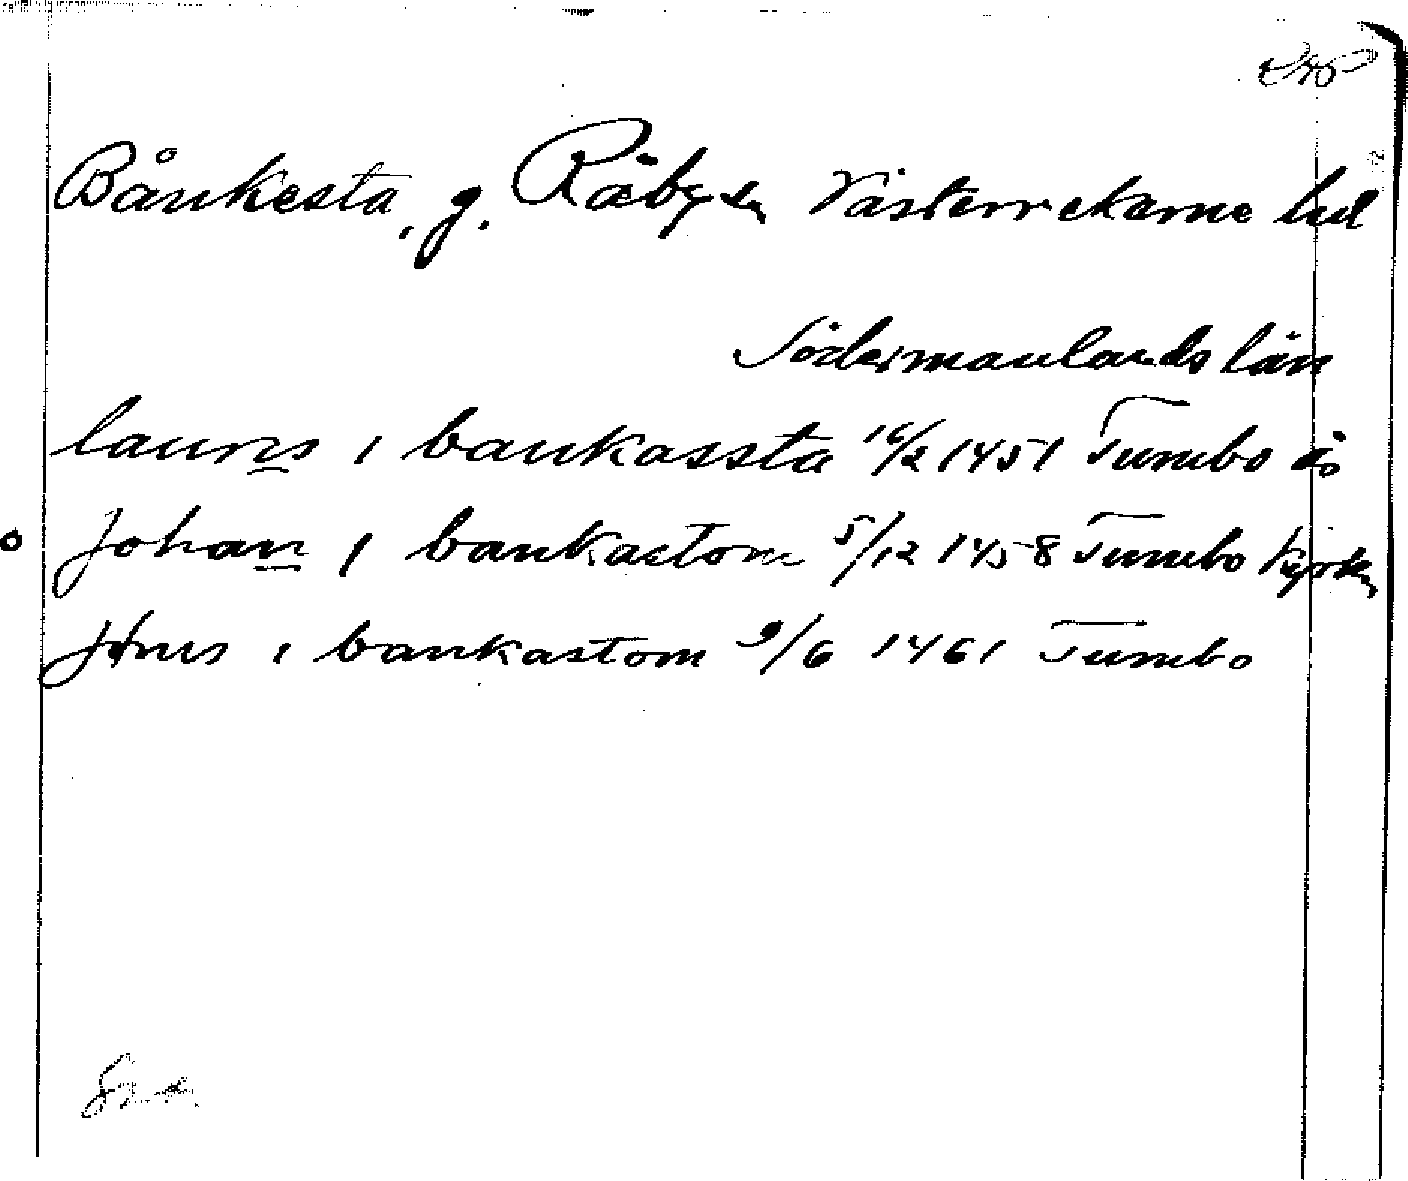 Bånkesta, g. Råby sn Västerrekarne hd
Södermanlands län
laurns i bankassta 16/2 1451 Tumbo
Johan i bankastom 5/12 1458 Tumbo kyrka
Jöns i bankastom 9/6 1461 Tumbo